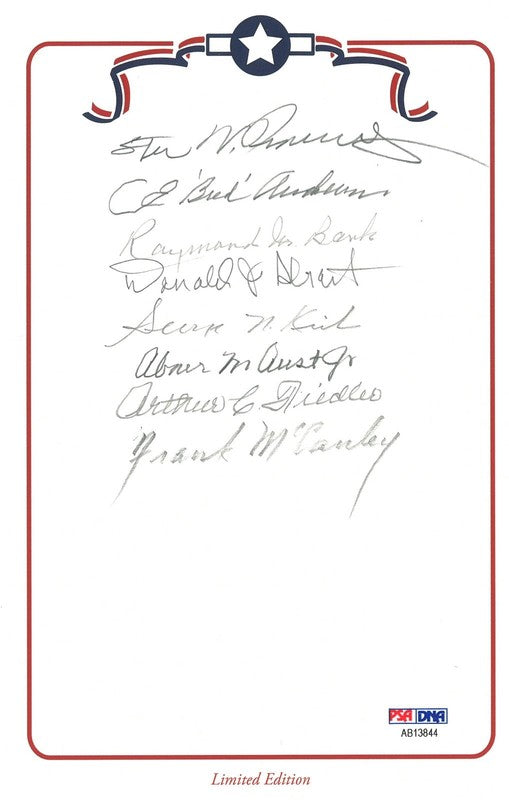 Sten N.
C E 'Bud' Anderson
Raymond M. Bank
Donald J Strait
N. Kirk
Abner M Aust Jr
Arthur C Fiedler
Frank McCauley
PSA DNA
AB13844
Limited Edition